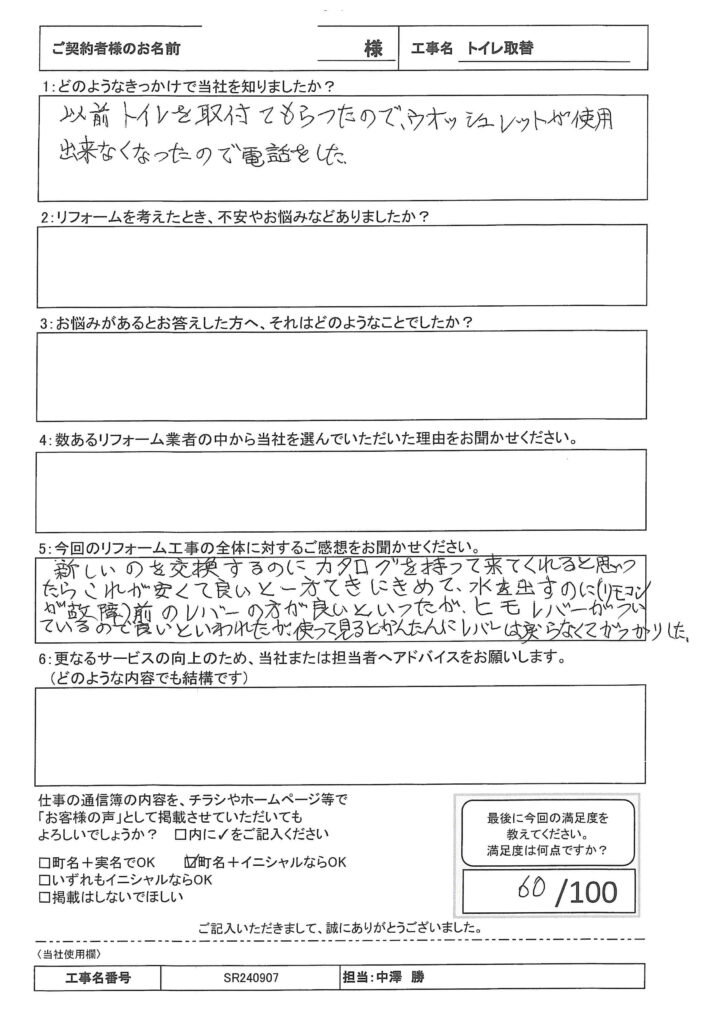 ご契約者様のお名前　様　工事名　トイレ取替
1:どのようなきっかけで当社を知りましたか？
以前トイレを取付てもらったので、ウオッシュレットが使用
出来なくなったので電話をした。
2:リフォームを考えたとき、不安やお悩みなどありましたか？
3:お悩みがあるとお答えした方へ、それはどのようなことでしたか？
4:数あるリフォーム業者の中から当社を選んでいただいた理由をお聞かせください。
5:今回のリフォーム工事の全体に対するご感想をお聞かせください。
新しいのを交換するのにカタログを持って来てくれると思っ
たらこれが安くて良いと一方てきにきめて、水を出すのに(リモコン
が故障)前のレバーの方が良いといったが、ヒモレバーがつい
ているので良いといわれたが、使って見るとかんたんにレバーは戻らなくてがっかりした。
6:更なるサービスの向上のため、当社または担当者へアドバイスをお願いします。
（どのような内容でも結構です）
仕事の通信簿の内容を、チラシやホームページ等で
「お客様の声」として掲載させていただいても
よろしいでしょうか？　□内に✓をご記入ください
□町名＋実名でOK　☑町名＋イニシャルならOK
□いずれもイニシャルならOK
□掲載はしないでほしい
最後に今回の満足度を
教えてください。
満足度は何点ですか？
60/100
ご記入いただきまして、誠にありがとうございました。
〈当社使用欄〉
工事名番号　SR240907　担当:中澤　勝